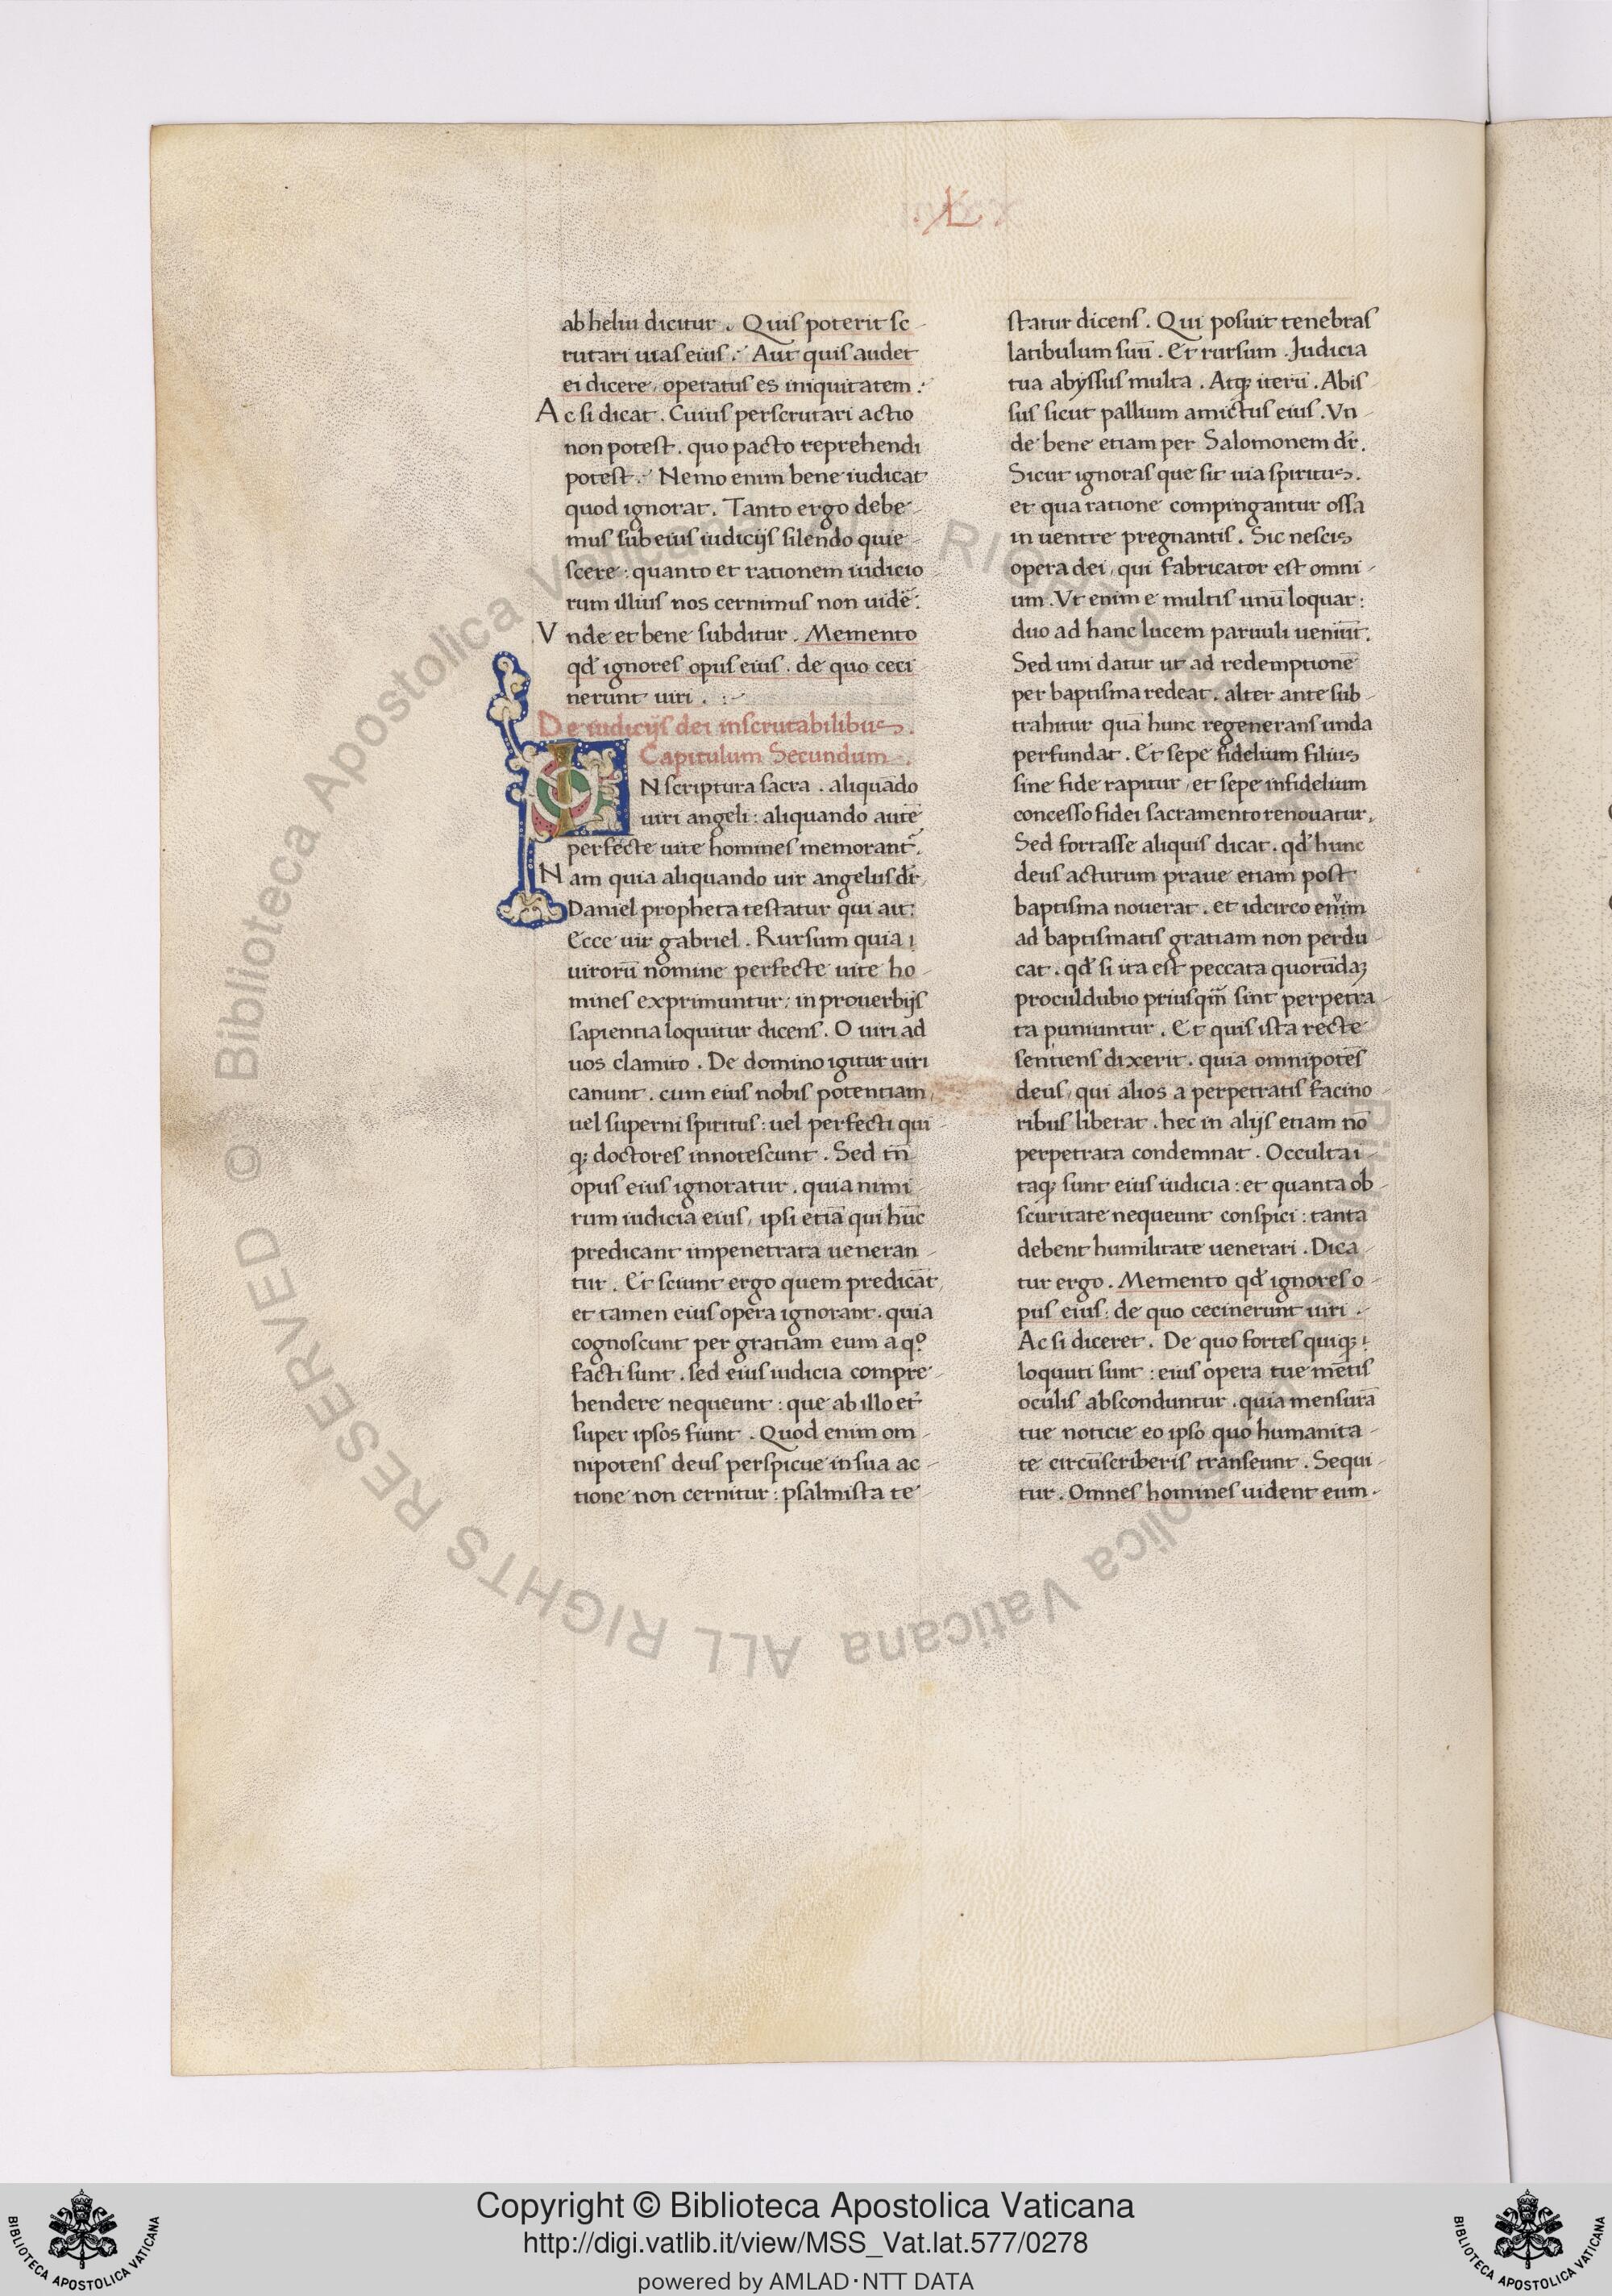 .XL.
ab heliu dicitur . Quis poterit sc-
rutari uias eius : Aut quis audet
ei dicere, operatus es iniquitatem :
Ac si dicat . Cuius perscrutari actio
non potest . quo pacto reprehendi
potest : Nemo enim bene iudicat
quod ignorat . Tanto ergo debe-
mus sub eius iudicijs silendo quie-
scere : quanto et rationem iudicio
rum illius nos cernimus non uidē :
Vnde et bene subditur . Memento
qđ ignores opus eius . de quo ceci
nerunt uiri . :-
De iudicijs dei inscrutabilibus .
Capitulum Secundum .
IN scriptura sacra . aliquando
uiri angeli : aliquando autē
perfecte uite homines memorant̃ .
Nam quia aliquando uir angelus dr̄,
Daniel propheta testatur qui ait :
Ecce uir gabriel . Rursum quia i
uirorū nomine perfecte uite ho-
mines exprimuntur : in prouerbijs
sapientia loquitur dicens . O uiri ad
uos clamito . De domino igitur uiri
canunt . cum eius nobis potentiam,
uel superni spiritus : uel perfecti qui
qꝫ doctores innotescunt . Sed tn̄
opus eius ignoratur . quia nimi-
rum iudicia eius, ipsi etiā qui hūc
predicant impenetrata ueneran-
tur . Et sciunt ergo quem predicāt,
et tamen eius opera ignorant . quia
cognoscunt per gratiam eum a qº
facti sunt . sed eius iudicia compre-
hendere nequeunt : que ab illo et̃
super ipsos fiunt . Quod enim om-
nipotens deus perspicue in sua ac-
tione non cernitur : psalmista te-
statur dicens . Qui posuit tenebras
latibulum suū . Et rursum . Judicia
tua abyssus multa . Atqꝫ iterū . Abis-
sus sicut pallium amictus eius . Vn-
de bene etiam per Salomonem dr̄.
Sicut ignoras que sit uia spiritus .
et qua ratione compingantur ossa
in uentre pregnantis . Sic nescis
opera dei, qui fabricator est omni-
um . Vt enim e multis unū loquar :
duo ad hanc lucem paruuli ueniūt .
Sed uni datur ut ad redemptionē
per baptisma redeat . alter ante sub-
trahitur quā hunc regenerans unda
perfundat . Et sepe fidelium filius
sine fide rapitur, et sepe infidelium
concesso fidei sacramento renouatur .
Sed fortasse aliquis dicat . qđ hunc
deus acturum praue etiam post
baptisma nouerat . et idcirco enim
ad baptismatis gratiam non perdu-
cat . qđ si ita est peccata quorūdaꝫ
proculdubio priusqm̄ sint perpetra-
ta puniuntur . Et quis ista recte
sentiens dixerit . quia omnipotēs
deus, qui alios a perpetratis facino-
ribus liberat . hec in alijs etiam nō
perpetrata condemnat . Occulta i-
taqꝫ sunt eius iudicia : et quanta ob
scuritate nequeunt conspici : tanta
debent humilitate uenerari . Dica-
tur ergo . Memento qđ ignores o-
pus eius : de quo cecinerunt uiri .
Ac si diceret . De quo fortes quiqꝫ i
loquuti sunt : eius opera tue mētis
oculis absconduntur . quia mensurā
tue noticie eo ipso quo humanita-
te circūscriberis transeunt . Sequi-
tur . Omnes homines uident eum .
© Biblioteca Apostolica Vaticana ALL RIGHTS RESERVED
Copyright © Biblioteca Apostolica Vaticana
http://digi.vatlib.it/view/MSS_Vat.lat.577/0278
powered by AMLAD·NTT DATA
BIBLIOTECA APOSTOLICA VATICANA
BIBLIOTECA APOSTOLICA VATICANA